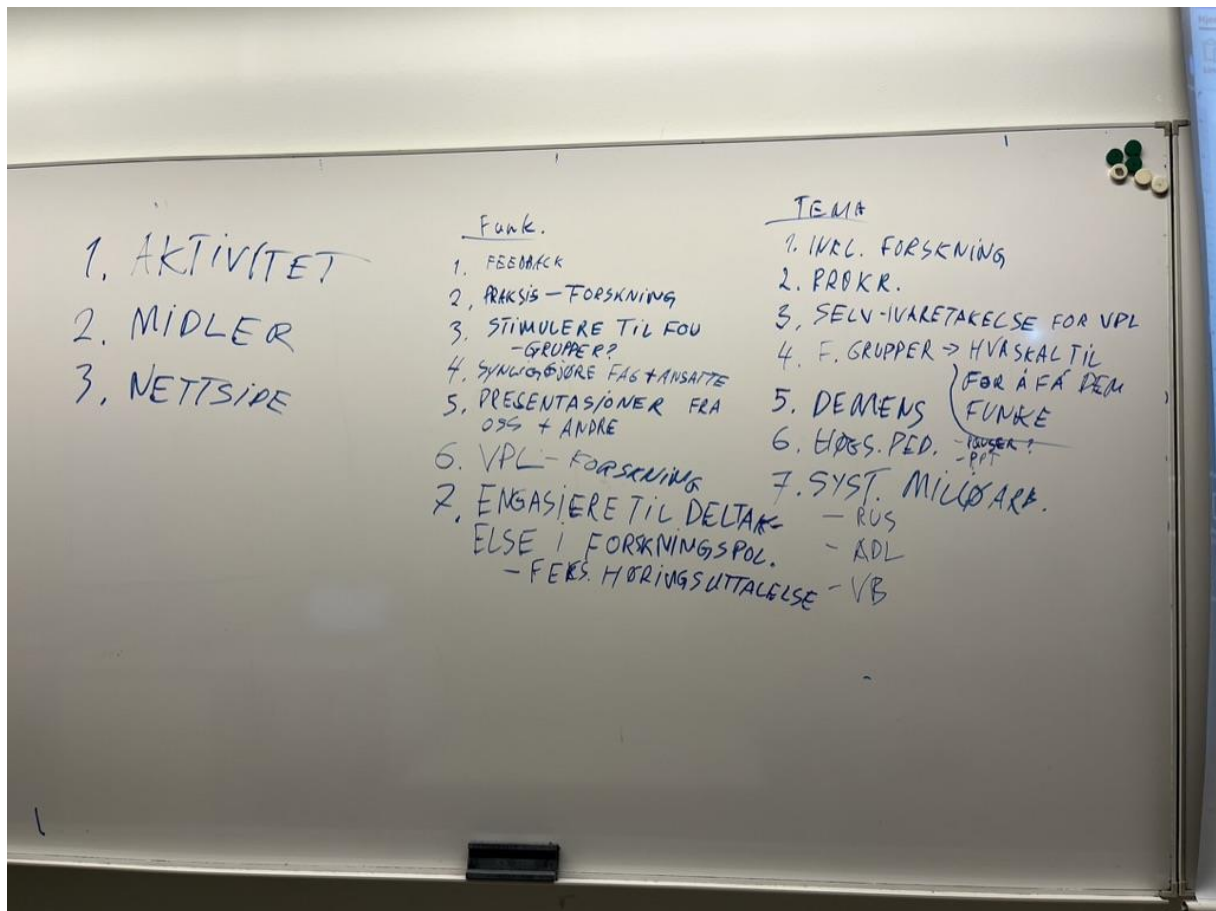 1. AKTIVITET
2. MIDLER
3. NETTSIDE
Funk.
1. FEEDBACK
2. PRAKSIS - FORSKNING
3. STIMULERE TIL FOU
- GRUPPER?
4. SYNLIGGJØRE FAG + ANSATTE
5. PRESENTASJONER FRA
OSS + ANDRE
6. VPL - FORSKNING
7. ENGASJERE TIL DELTAK-
ELSE I FORSKNINGSPOL.
- F EKS. HØRINGSUTTALELSE
TEMA
1. INKL. FORSKNING
2. PROKR.
3. SELV-IVARETAKELSE FOR VPL
4. F. GRUPPER → HVA SKAL TIL
FOR Å FÅ DEM
FUNKE
5. DEMENS
6. HØGS. PED. - PAUSER?
- PPT
7. SYST. MILJØARB.
- RUS
- ADL
- VB